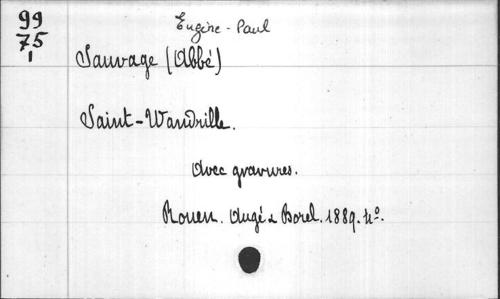 99
75
1
Eugène-Paul
Sauvage (Abbé)
Saint-Wandrille.
Avec gravures.
Rouen. Augé & Borel. 1889. 4º.